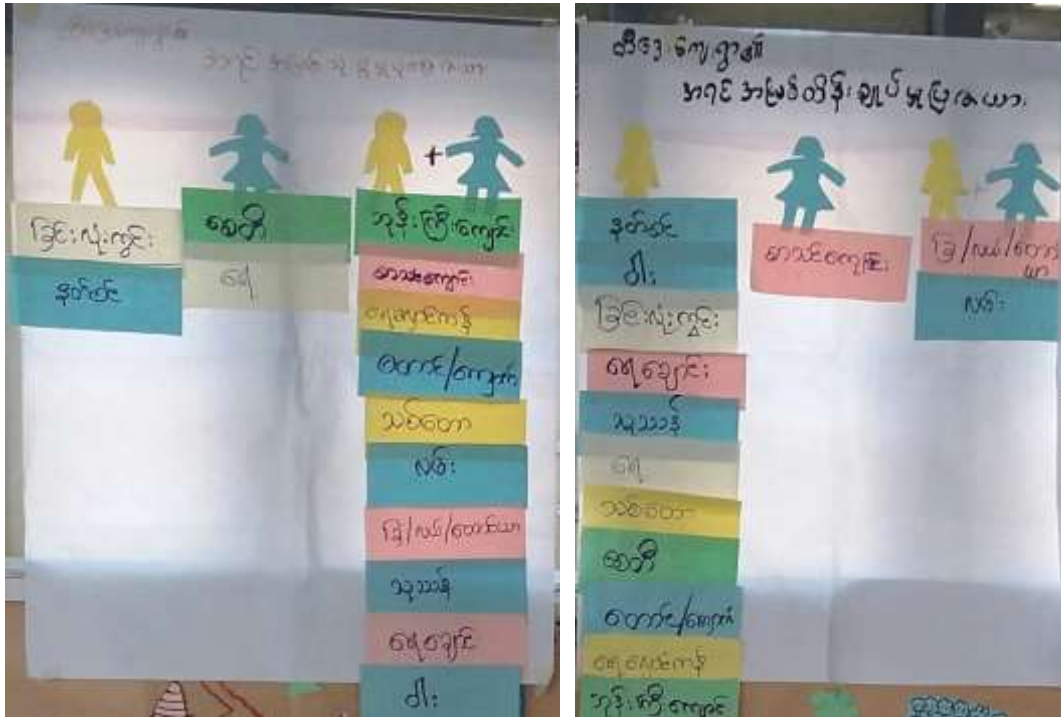 ခြင်းလုံးကွင်း
နတ်စင်
စေတီ
ရေ
ဘုန်းကြီးကျောင်း
စာသင်ကျောင်း
ရေလှောင်ကန်
တောင်/ကျောက်
သစ်တော
လမ်း
ခြံ/လယ်/တောင်ယာ
သုသာန်
ရေချောင်း
ဝါး
အရင်းအမြစ်ထိန်းချုပ်မှုပြဇယား
နတ်စင်
ဝါး
ခြင်းလုံးကွင်း
ရေချောင်း
သုသာန်
ရေ
သစ်တော
စေတီ
တောင်/ကျောက်
ရေလှောင်ကန်
ဘုန်းကြီးကျောင်း
စာသင်ကျောင်း
ခြံ/လယ်/တောင်
ယာ
လမ်း